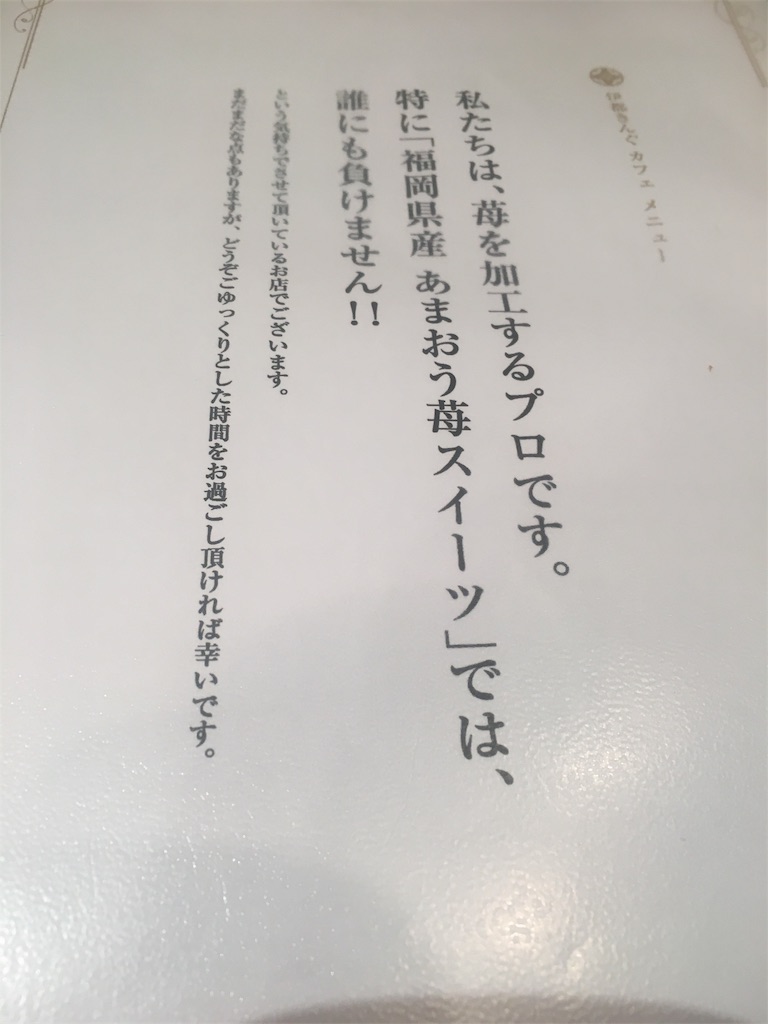 伊都きんぐ カフェ メニュー
私たちは、苺を加工するプロです。
特に「福岡県産 あまおう苺スイーツ」では、
誰にも負けません!!
という気持ちでさせて頂いているお店でございます。
まだまだな点もありますが、どうぞごゆっくりとした時間をお過ごし頂ければ幸いです。